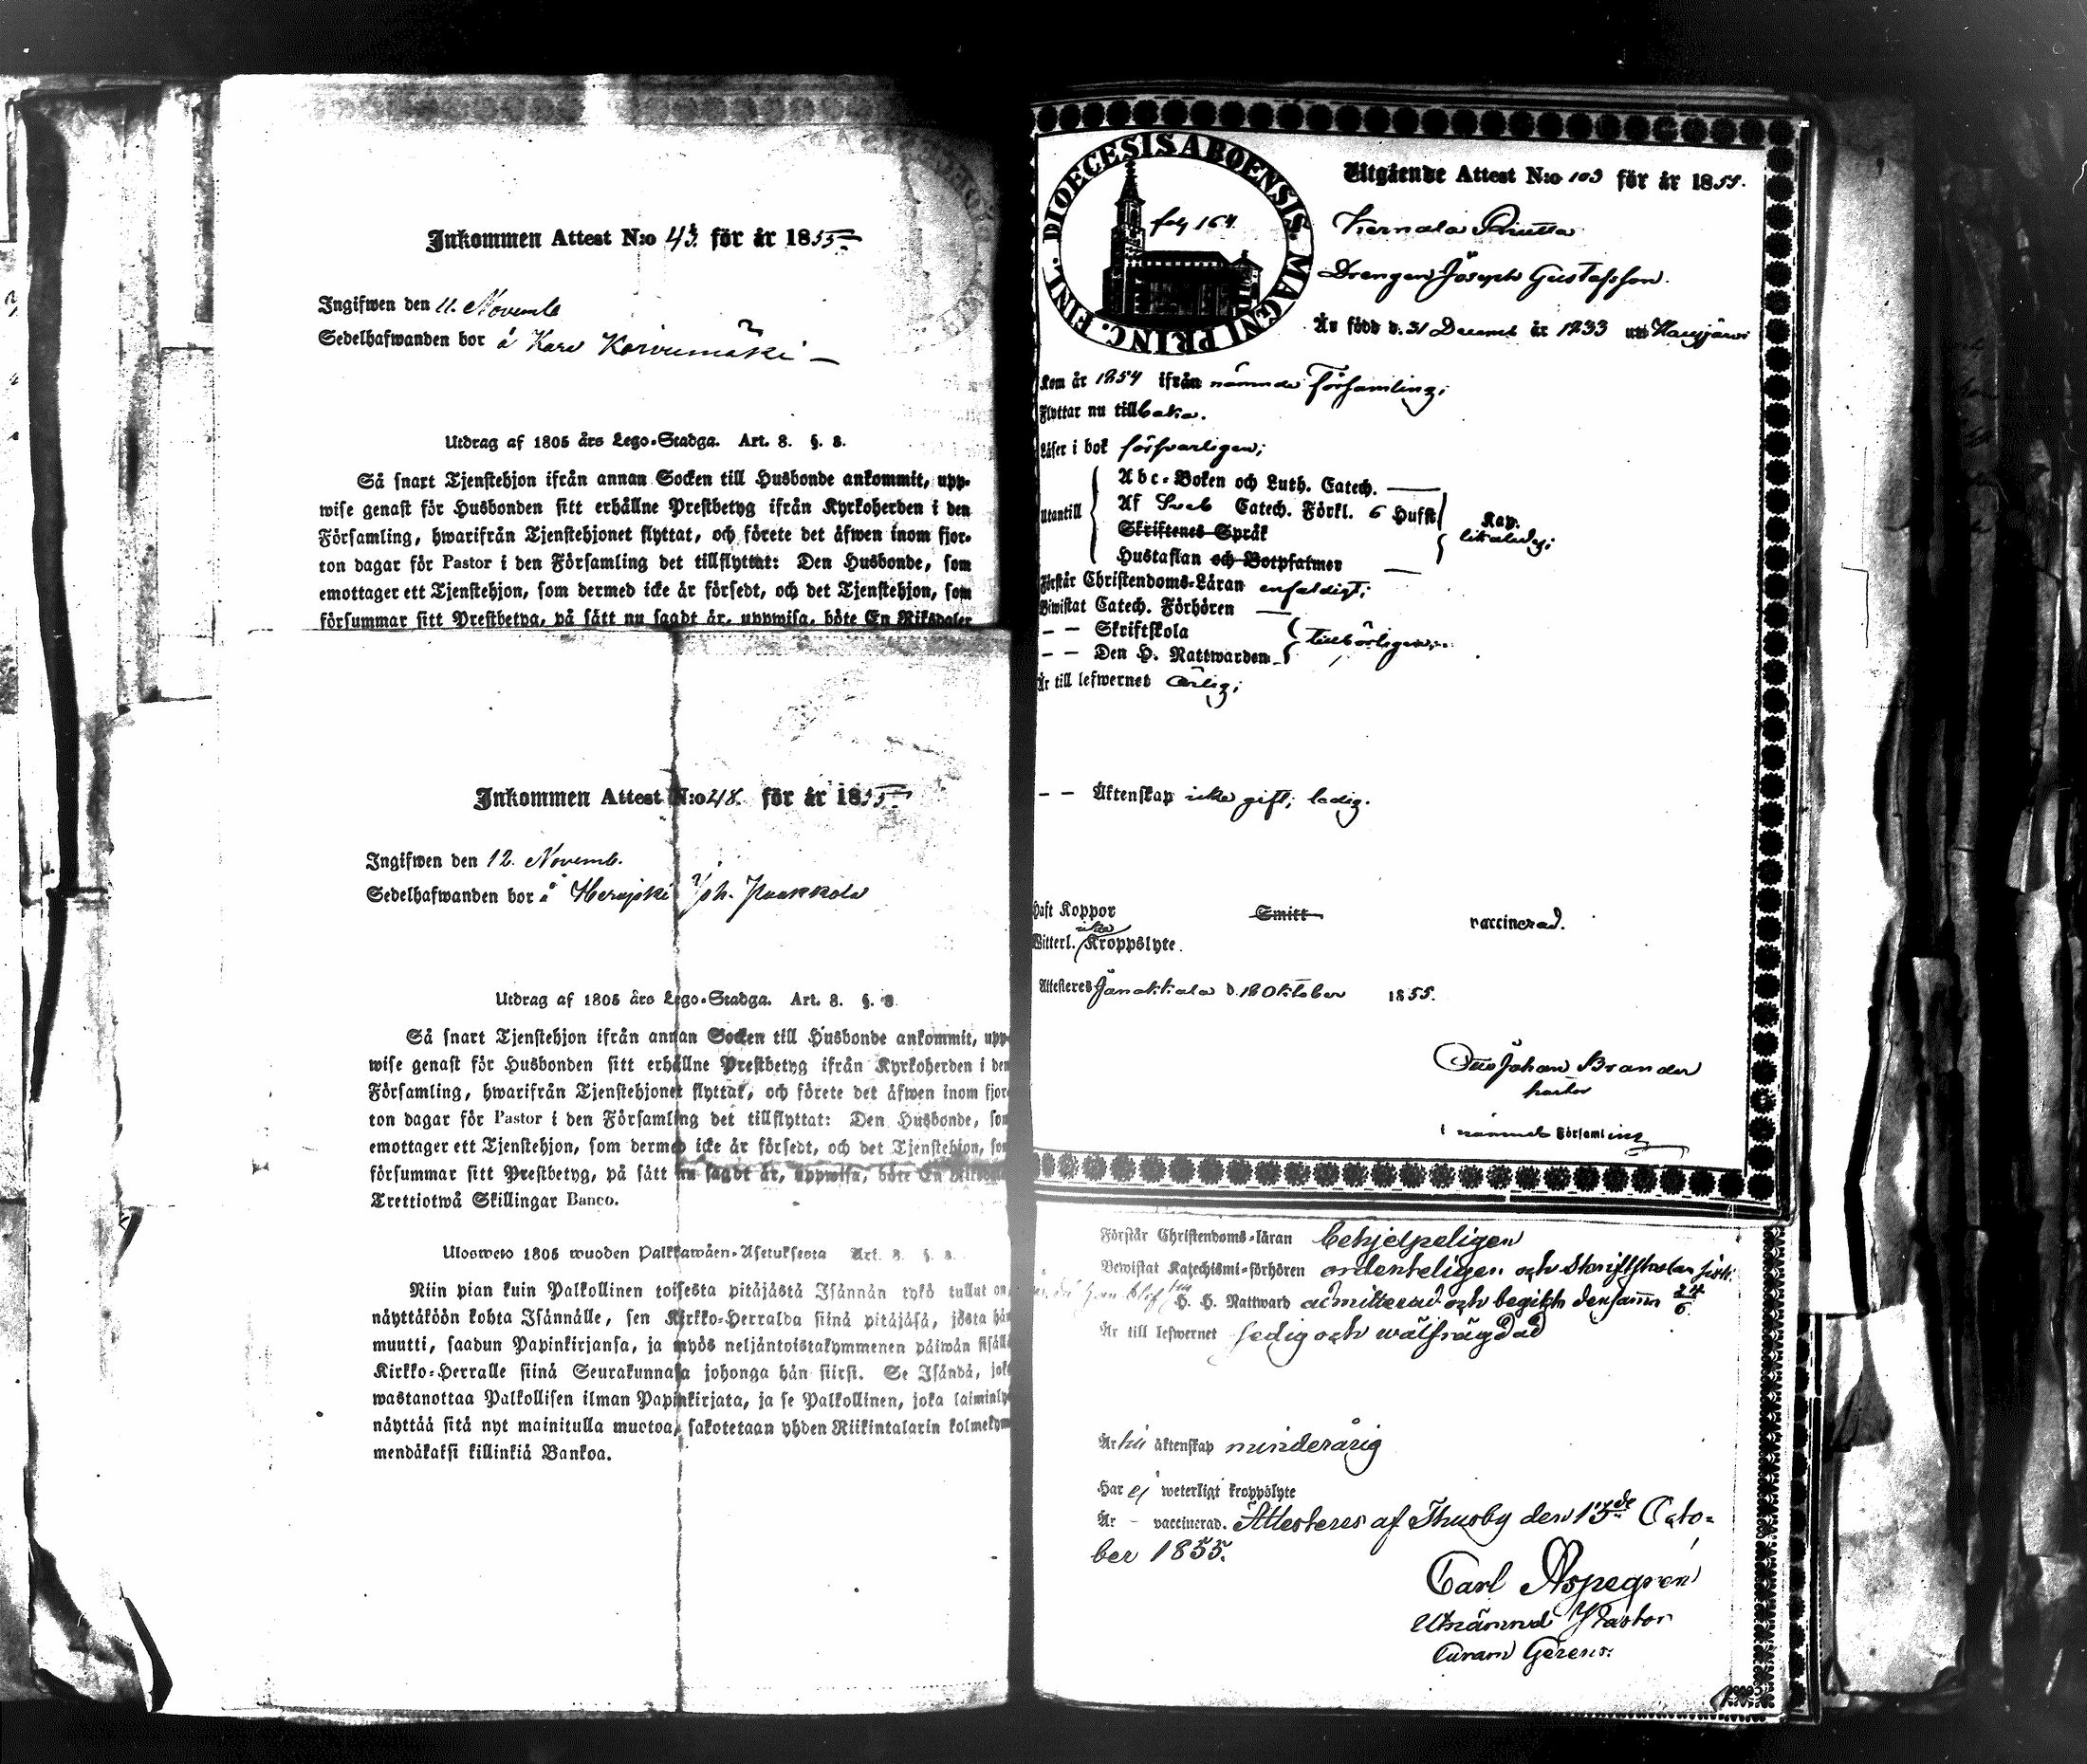 Inkommen Attest N:o 43. för år 1855.
Ingifwen den 11. Novemb
Sedelhafwanden bor å Kara Korvumäki
Utdrag af 1805 års Lego-Stadga. Art. 8. §. 8.
Så snart Tjenstehjon ifrån annan Socken till Husbonde ankommit, upp-
wise genast för Husbonden sitt erhållne Prestbetyg ifrån Kyrkoherden i den
Församling, hwarifrån Tjenstehjonet flyttat, och förete det äfwen inom fjor-
ton dagar för Pastor i den Församling det tillflyttat: Den Husbonde, som
emottager ett Tjenstehjon, som dermed icke är försedt, och det Tjenstehjon, som
försummar sitt Prestbetyg, på sätt nu sagdt är, uppwisa, böte En Riksdaler
Inkommen Attest N:o 48. för år 1855.
Ingifwen den 12. Novemb.
Sedelhafwanden bor å Herajoki Joh. Paakkola
Utdrag af 1805 års Lego-Stadga. Art. 8. §. 8
Så snart Tjenstehjon ifrån annan Socken till Husbonde ankommit, upp-
wise genast för Husbonden sitt erhållne Prestbetyg ifrån Kyrkoherden i den
Församling, hwarifrån Tjenstehjonet flyttat, och förete det äfwen inom fjor-
ton dagar för Pastor i den Församling det tillflyttat: Den Husbonde, som
emottager ett Tjenstehjon, som dermed icke är försedt, och det Tjenstehjon, som
försummar sitt Prestbetyg, på sätt nu sagdt är, uppwisa, böte En Riksdaler
Trettiotwå Skillingar Banco.
Ulosweto 1805 wuoden Palkkawäen-Asetuksesta Art. 8. §. 8.
Niin pian kuin Palkollinen toisesta pitäjästä Isännän tykö tullut on,
näyttäköön kohta Isännälle, sen Kirkko-Herralda siinä pitäjäsä, josta hän
muutti, saadun Papinkirjansa, ja myös neljäntoistakymmenen päiwän sisällä
Kirkko-Herralle siinä Seurakunnasa johonga hän siirsi. Se Isändä, joka
wastanottaa Palkollisen ilman Papinkirjata, ja se Palkollinen, joka laiminly
näyttää sitä nyt mainitulla muotoa, sakotetaan yhden Riikintalarin kolmekym
mendäkaksi killinkiä Bankoa.
DIOECESIS ABOENSIS. MAGNI PRINC. FINL.
fol 164
Utgående Attest N:o 103 för år 1855.
Kernala Riutta
Drengen Joseph Gustafsson.
Är född d. 31 Decemb år 1833 uti Hausjärwi
Kom år 1854 ifrån nämnde församling;
Flyttar nu tillbaka.
Läser i bok försvarligen;
Utantill
Abc-Boken och Luth. Catech.
Af Sveb Catech. Förkl. 6 Hufst
Skriftenes Språk
Hustaflan och Botpsalmer
Kap.
likaledes;
Förstår Christendoms-Läran enfaldigt;
Biwistat Catech. Förhören
– – Skriftskola
– – Den H. Nattwarden
tillbörligen;
Är till lefwernet ärlig;
– – Äktenskap icke gift; ledig.
Haft Koppor Smitt vaccinerad.
icke
Witterl. Kroppslyte.
Attesteres Janakkala d. 18 Oktober 1855.
Otto Johan Brander
Pastor
i nämnde Församling
Förstår Christendoms-läran behjelpeligen
Bewistat Katechismi-förhören ordenteligen och Skriftskolan sist
då han blef till H. H. Nattward admitterad och begick densamma 24/6
Är till lefwernet sedig och wälfrägdad
Är till äktenskap minderårig
Har ej weterligt kroppslyte
Är – vaccinerad. Attesteres af Thusby den 13de Octo=
ber 1855.
Carl Aspegren
Utnämnd Pastor
Curam Gerens.